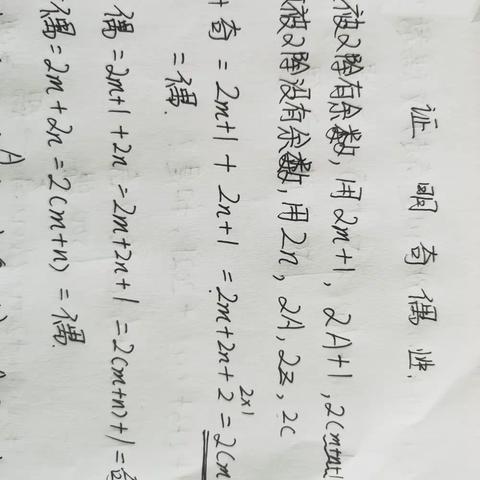 证明奇偶性.
被2除有余数,用2m+1,2A+1,2(m+n)+1
被2除没有余数,用2n,2A,2z,2c
+奇=2m+1+2n+1=2m+2n+2=2(m
2×1
=偶.
偶=2m+1+2n=2m+2n+1=2(m+n)+1=奇
偶=2m+2n=2(m+n)=偶.
A